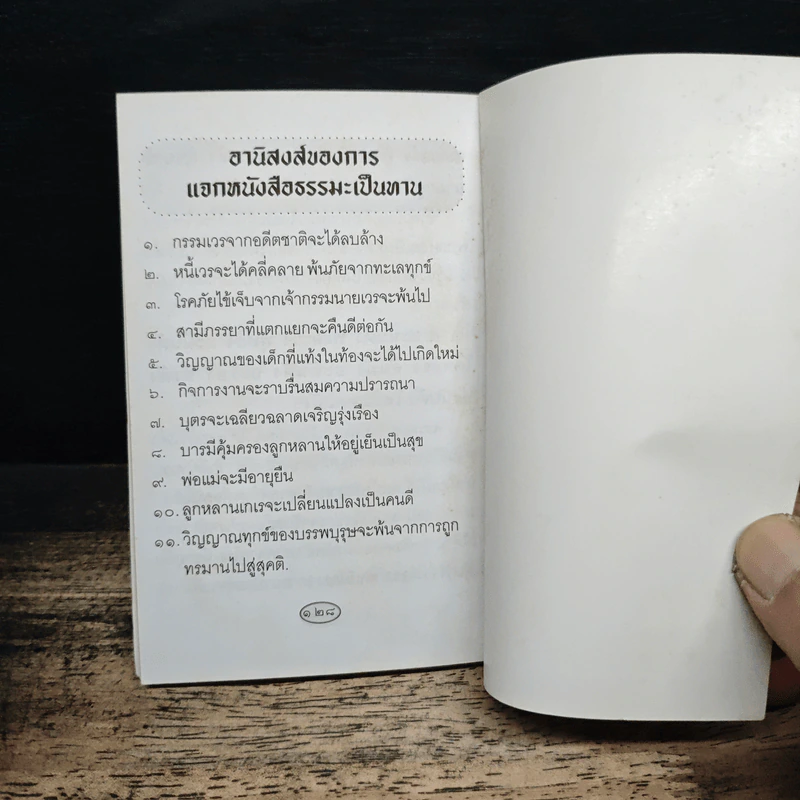 อานิสงส์ของการ
แจกหนังสือธรรมะเป็นทาน
๑. กรรมเวรจากอดีตชาติจะได้ลบล้าง
๒. หนี้เวรจะได้คลี่คลาย พ้นภัยจากทะเลทุกข์
๓. โรคภัยไข้เจ็บจากเจ้ากรรมนายเวรจะพ้นไป
๔. สามีภรรยาที่แตกแยกจะคืนดีต่อกัน
๕. วิญญาณของเด็กที่แท้งในท้องจะได้ไปเกิดใหม่
๖. กิจการงานจะราบรื่นสมความปรารถนา
๗. บุตรจะเฉลียวฉลาดเจริญรุ่งเรือง
๘. บารมีคุ้มครองลูกหลานให้อยู่เย็นเป็นสุข
๙. พ่อแม่จะมีอายุยืน
๑๐. ลูกหลานเกเรจะเปลี่ยนแปลงเป็นคนดี
๑๑. วิญญาณทุกข์ของบรรพบุรุษจะพ้นจากการถูก
ทรมานไปสู่สุคติ.
๑๒๘